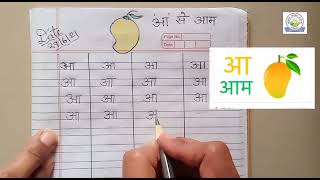 'आ' से आम
Date
Page No.
Date
आ आ आ आ
आ आ आ आ
आ आ आ आ
आ आ अ
आ
आम